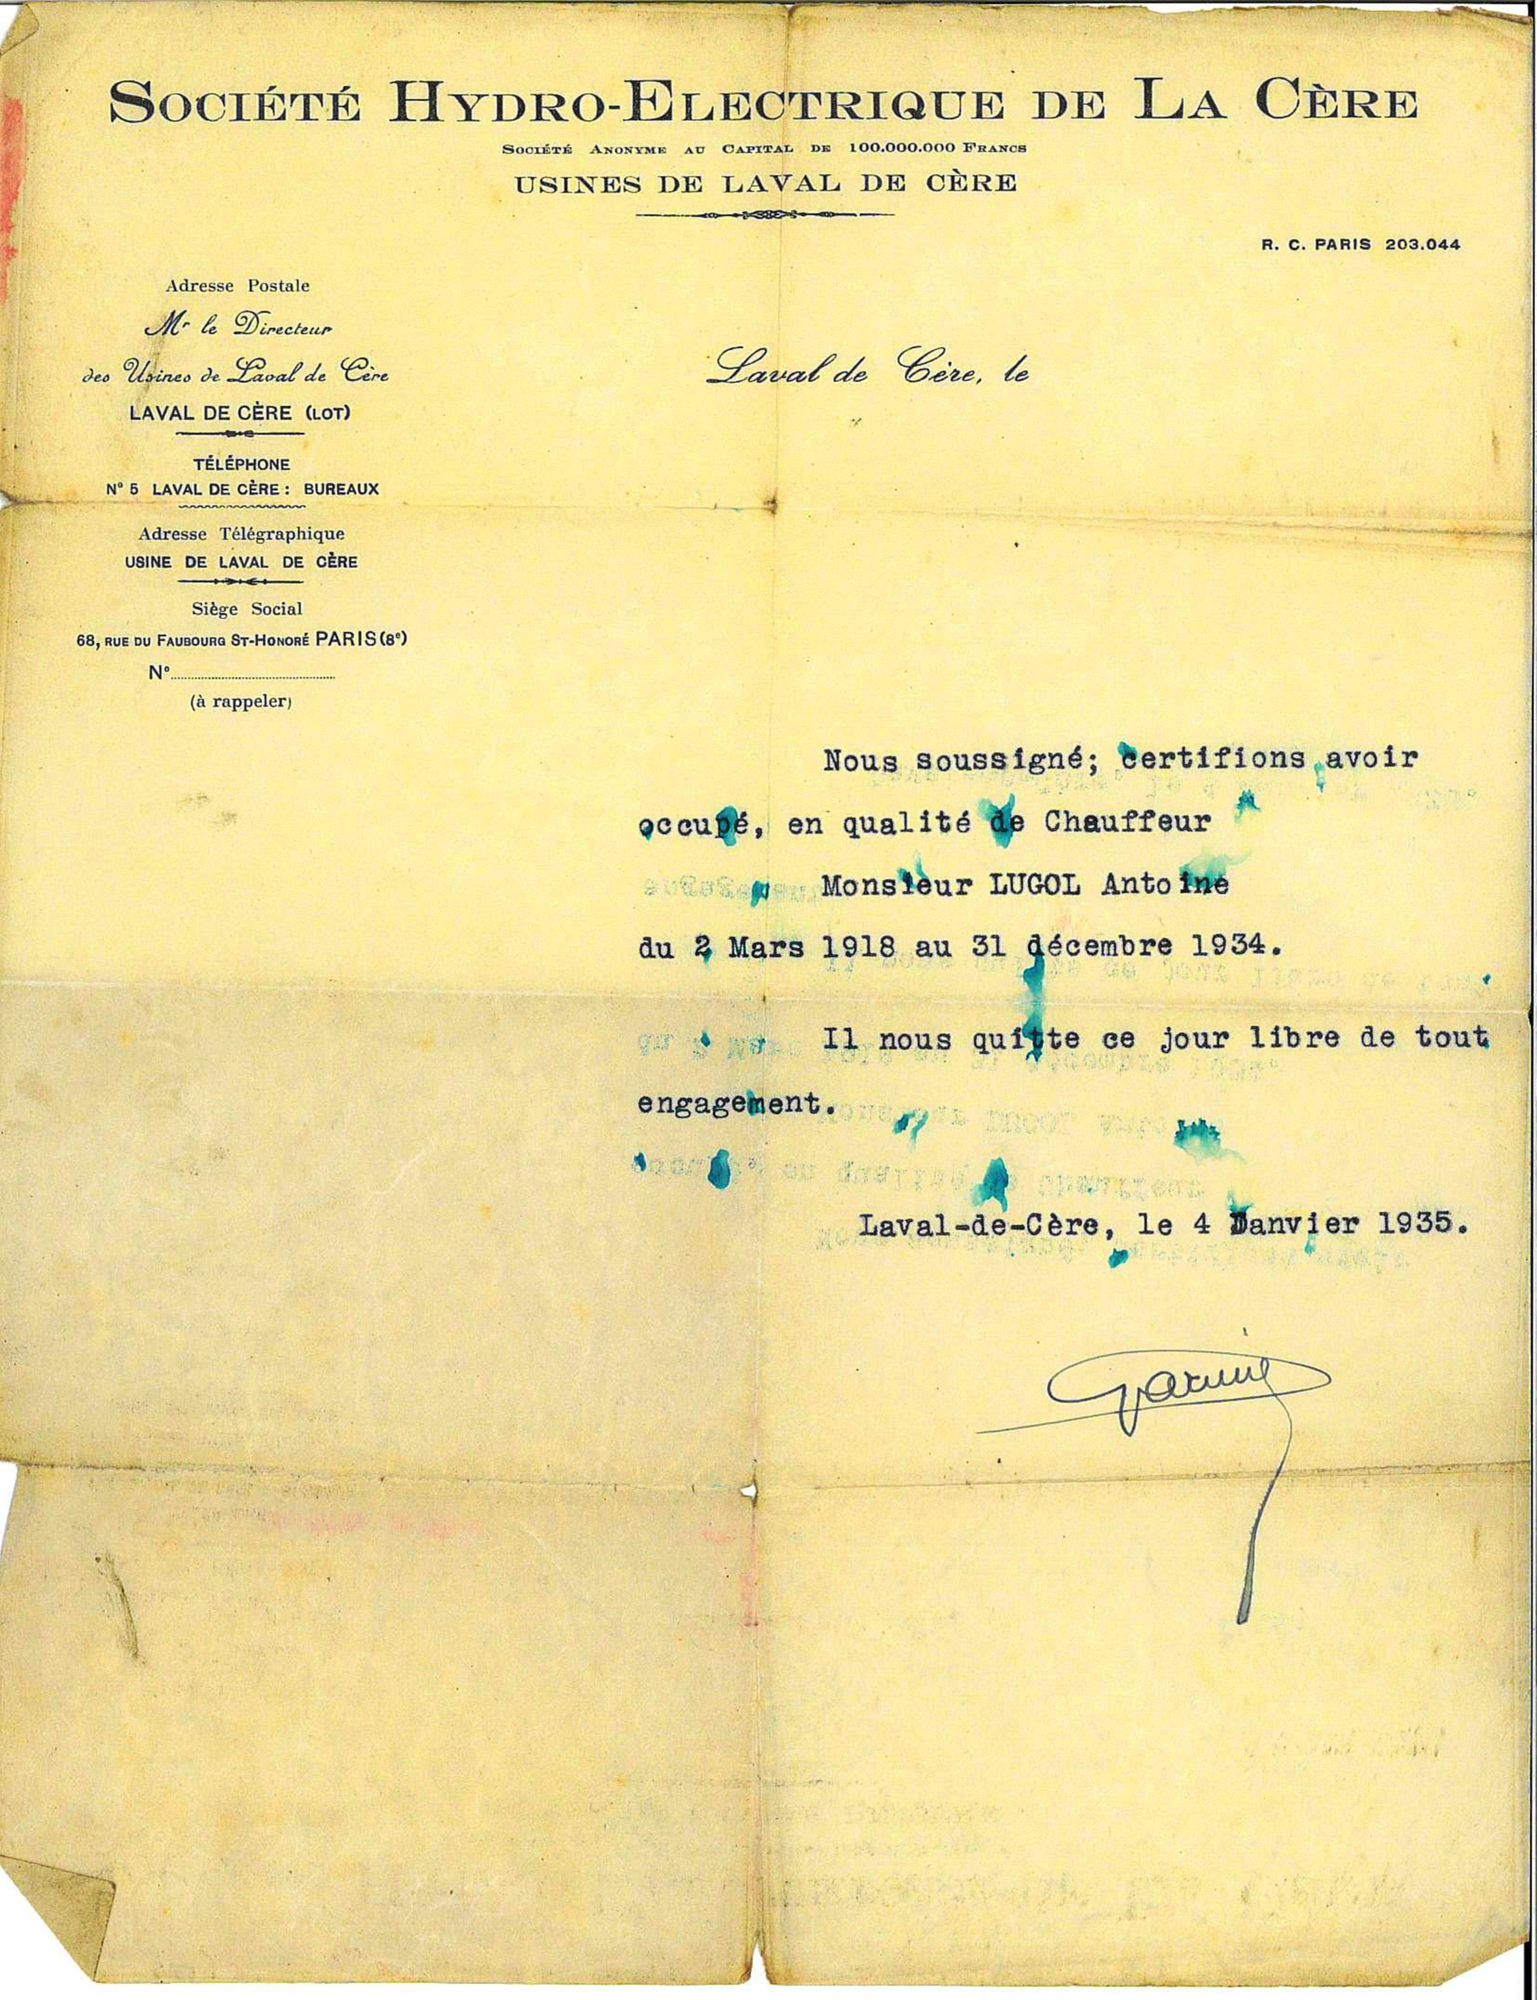 SOCIÉTÉ HYDRO-ELECTRIQUE DE LA CÈRE
SOCIÉTÉ ANONYME AU CAPITAL DE 100.000.000 FRANCS
USINES DE LAVAL DE CÈRE
R. C. PARIS 203.044
Adresse Postale
Mr le Directeur
des Usines de Laval de Cère
LAVAL DE CÈRE (LOT)
TÉLÉPHONE
N° 5 LAVAL DE CÈRE : BUREAUX
Adresse Télégraphique
USINE DE LAVAL DE CÈRE
Siège Social
68, RUE DU FAUBOURG ST-HONORÉ PARIS (8e)
N°
(à rappeler)
Laval de Cère, le
Nous soussigné; certifions avoir
occupé, en qualité de Chauffeur
Monsieur LUGOL Antoine
du 2 Mars 1918 au 31 décembre 1934.
Il nous quitte ce jour libre de tout
engagement.
Laval-de-Cère, le 4 Janvier 1935.